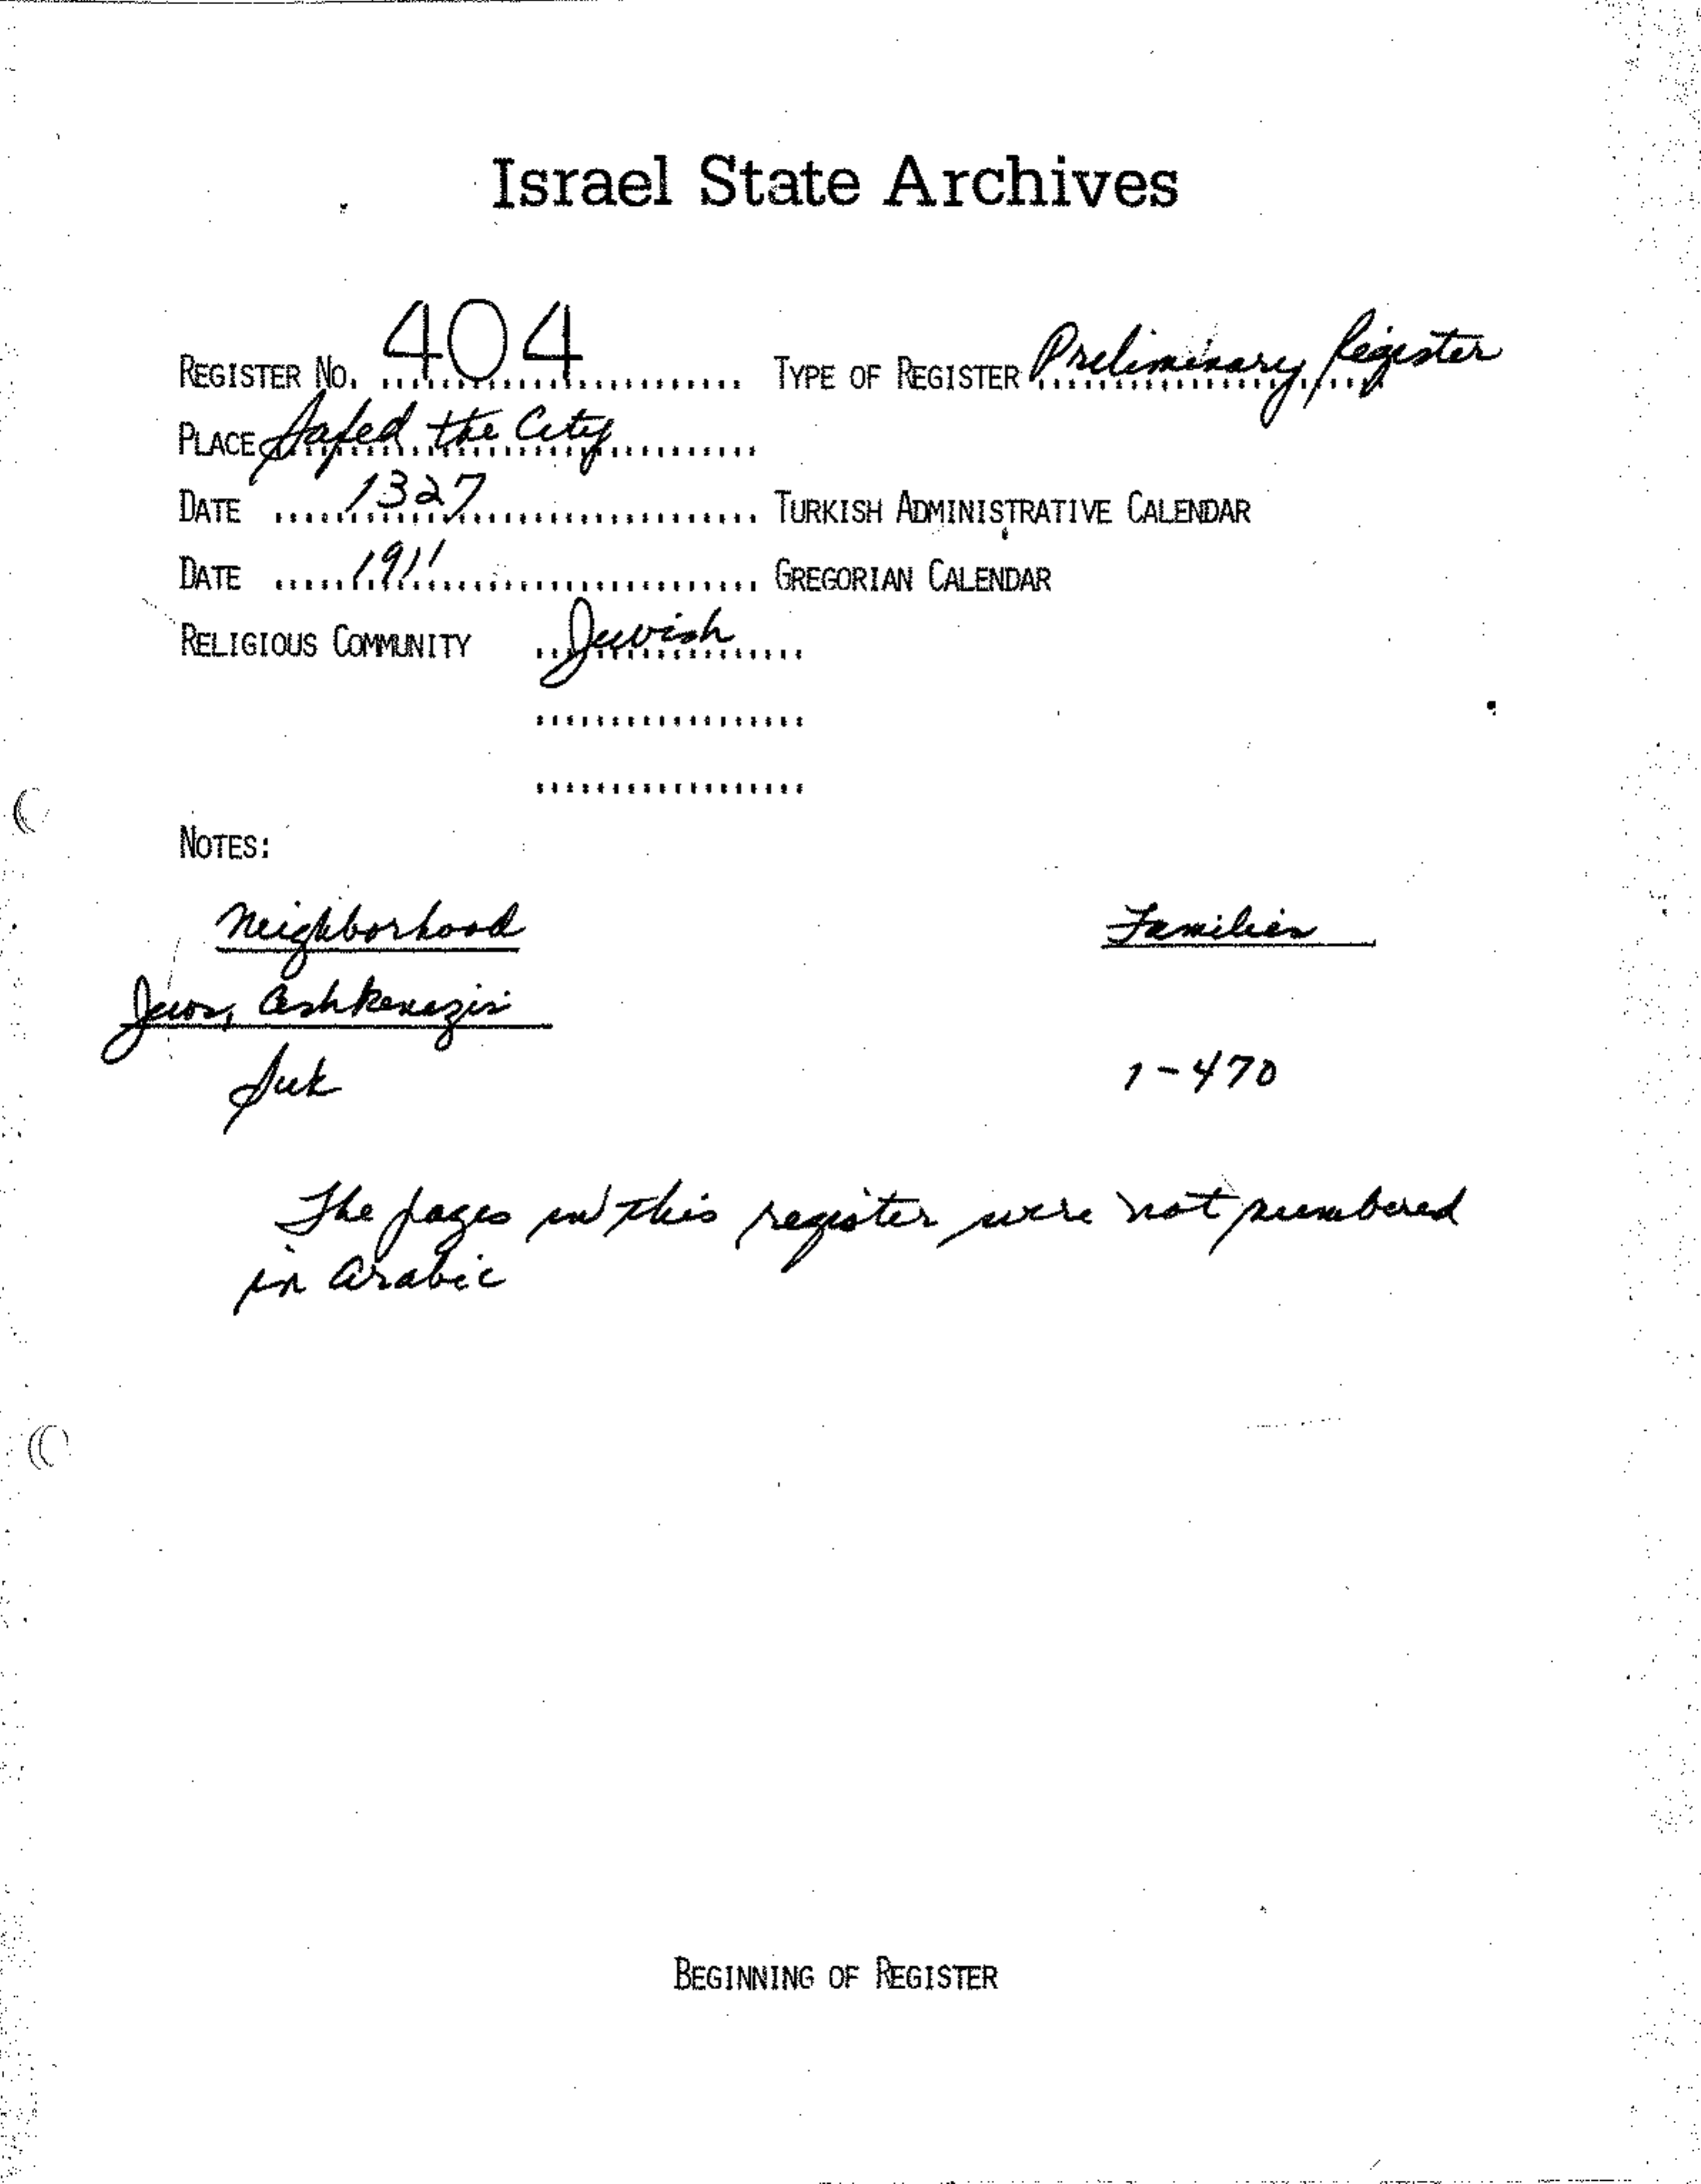 Israel State Archives
REGISTER NO. 404 TYPE OF REGISTER Preliminary Register
PLACE Safed the City
DATE 1327 TURKISH ADMINISTRATIVE CALENDAR
DATE 1911 GREGORIAN CALENDAR
RELIGIOUS COMMUNITY Jewish
NOTES:
Neighborhood Families
Jews, Ashkenazis
Suk 1-470
The pages in this register were not numbered
in Arabic
BEGINNING OF REGISTER